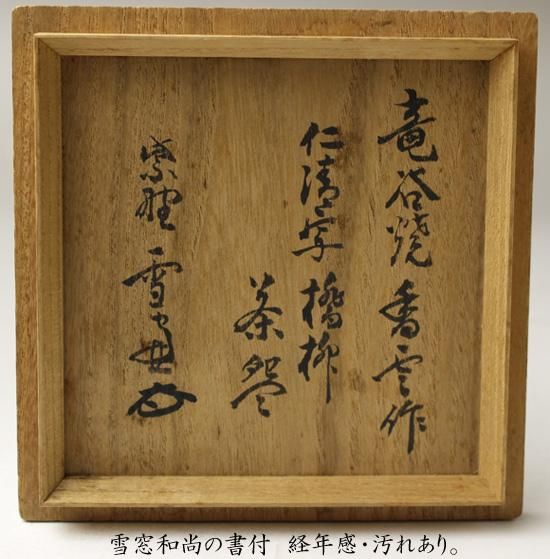 竜谷焼 香雲作
仁清写 橋柳
茶碗
紫野 雪窓
雪窓和尚の書付 経年感・汚れあり。